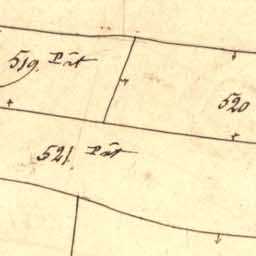 519. Pât
520
521. Pât